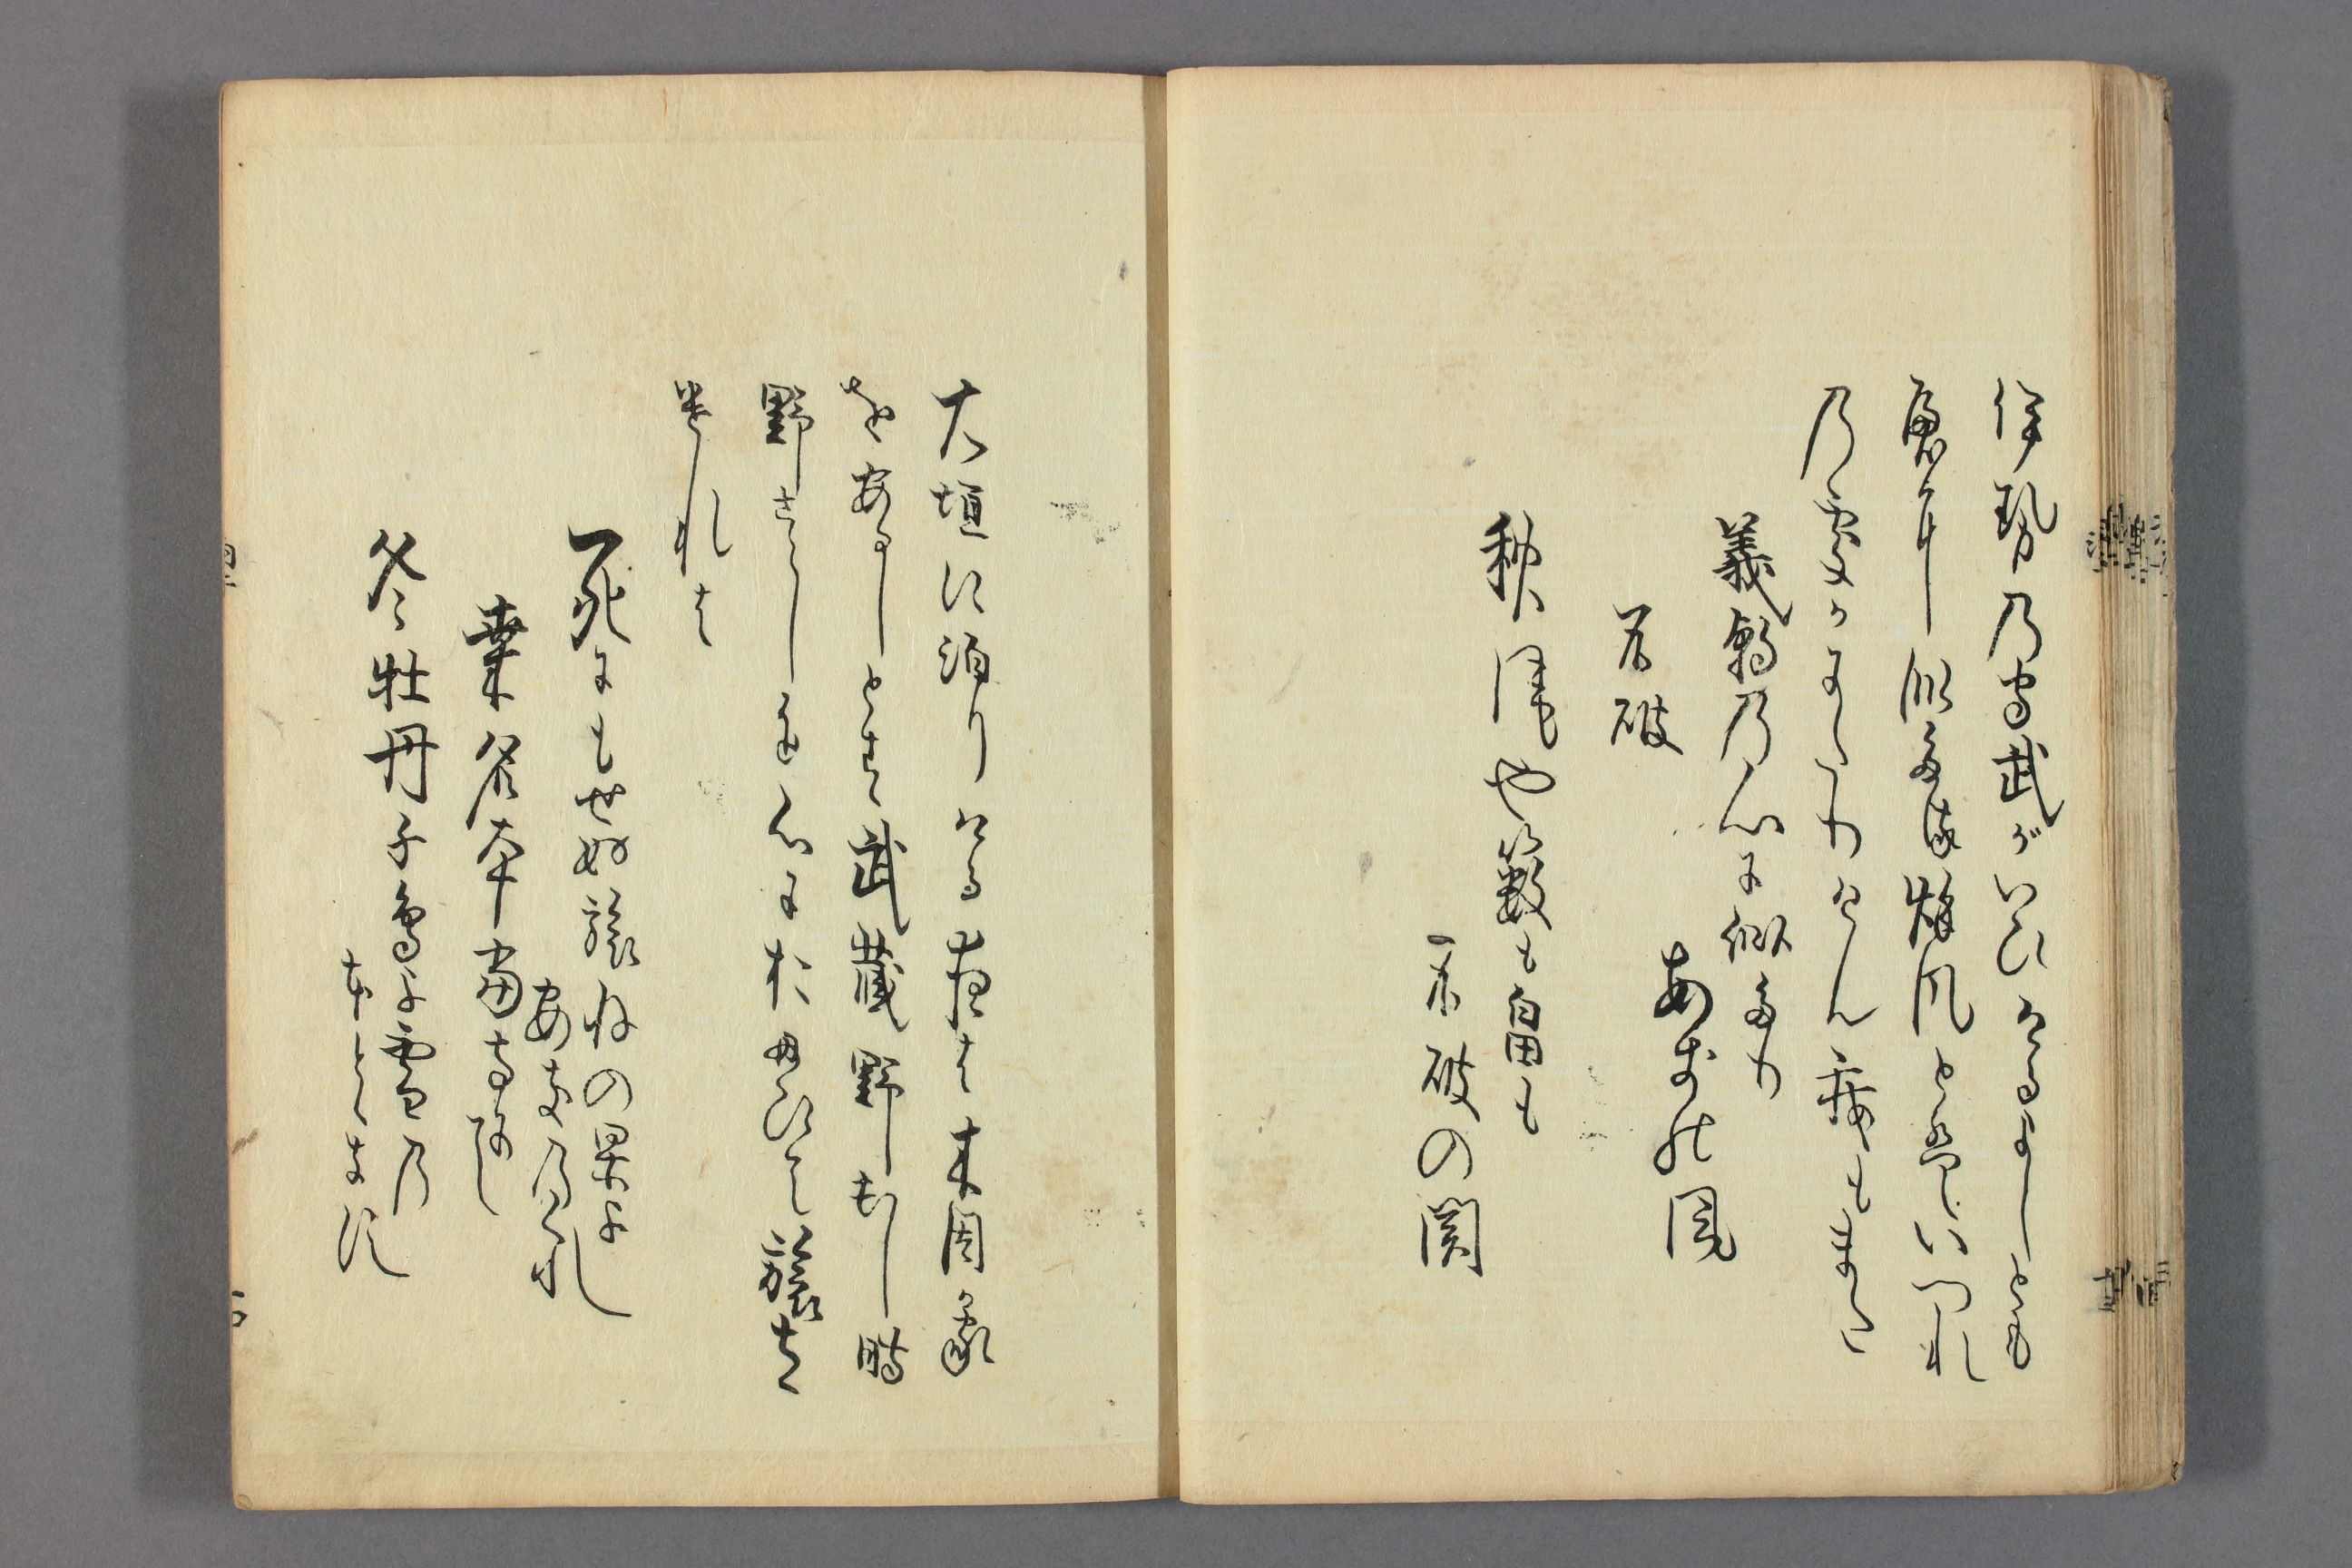 伊勢乃守武がいひけるよしとも
殿に似たる秋風とはいつれ
乃處か似たりけん我もまた
義朝乃心に似たり
あきの風
不破
秋風や藪も畠も
不破の関
大垣に泊りける夜は木因か家
をあるしとす武蔵野出し時
野さらしを心におもひて旅立
けれは
死にもせぬ旅ねの果よ
あき乃くれ
桑名本當寺にて
冬牡丹千鳥よ雪乃
ほとゝきす